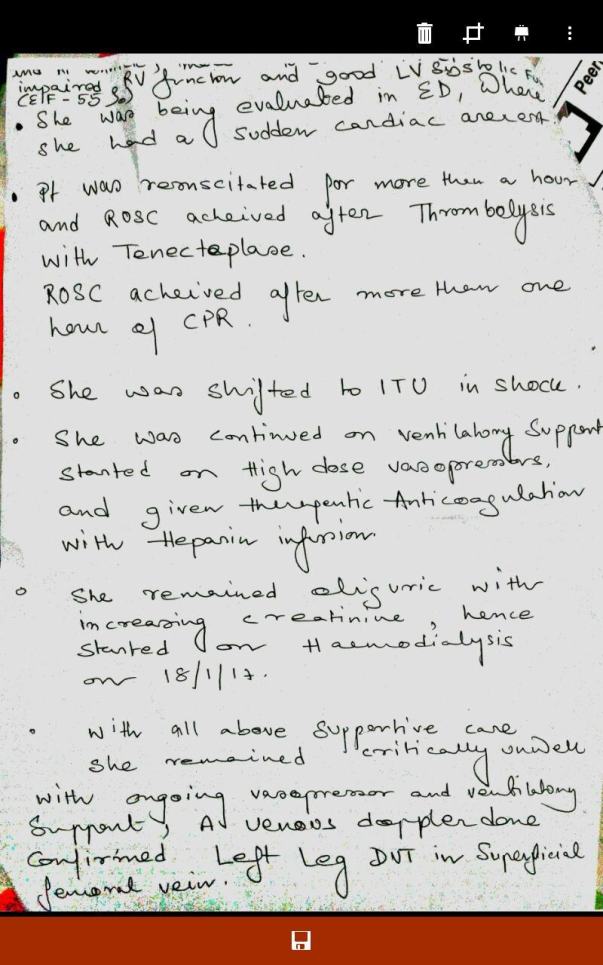 impaired RV function and good LV systolic
(EF - 55
• She was being evaluated in ED, where
she had a sudden cardiac arerest
Peer
• Pt was resonscitated for more than a hour
and ROSC acheived after Thrombolysis
with Tenecteplase.
ROSC acheived after more than one
hour of CPR.
• She was shifted to ITU in shock.
• She was continued on ventilatory support
started on High dose vasopressors,
and given therepentic Anticoagulation
with Heparin infusion.
• She remained oliguric with
increasing creatinine, hence
started on Haemodialysis
on 18/1/17.
• with all above supportive care
she remained critically unwell
with ongoing vasopressor and ventilatory
support, A venous doppler done
confirmed Left Leg DVT in Superficial
femoral vein.